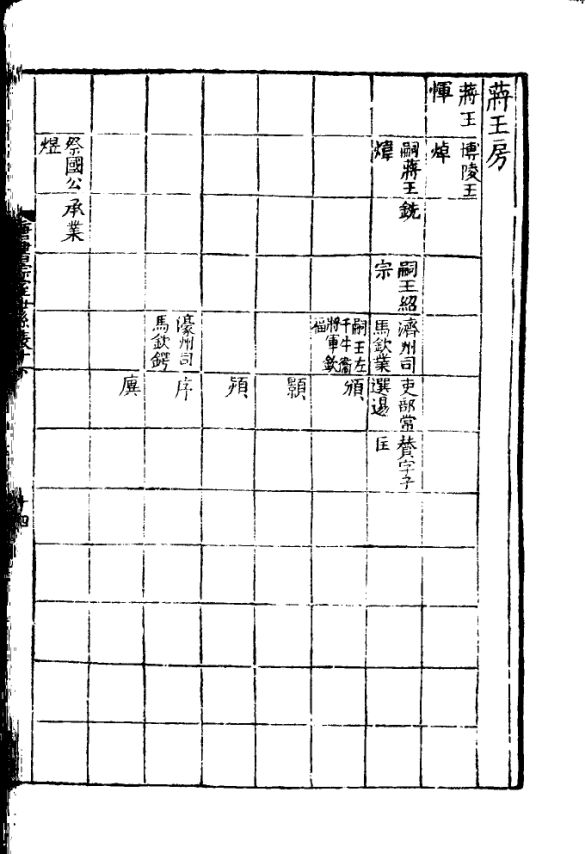 蔣王房
蔣王惲
博陵王焯
嗣蔣王煒
銑
嗣王紹宗
濟州司馬欽業
吏部常選逷
贊字子匡
嗣王左千牛衛將軍欽福
頒
顥
蘋
濠州司馬欽鍔
序
廙
祭國公煜
承業
十四